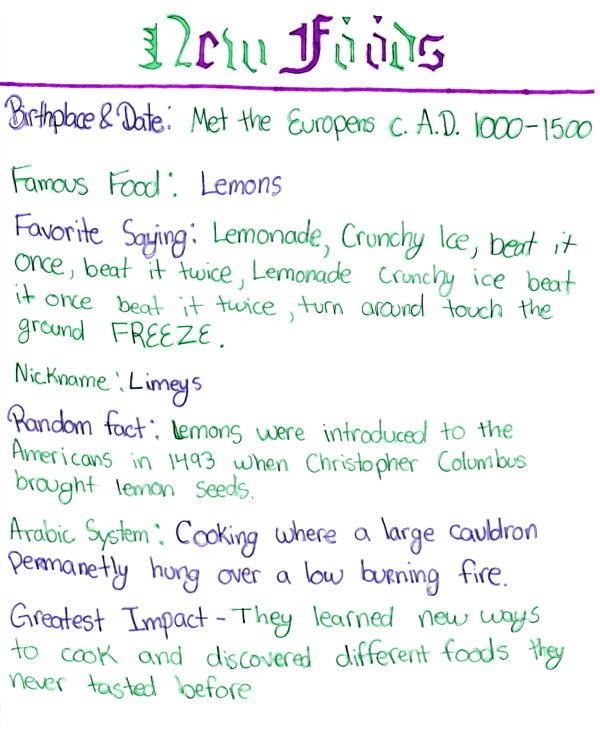 New Foods
Birthplace & Date: Met the Europens c. A.D. 1000-1500
Famous Food: Lemons
Favorite Saying: Lemonade, Crunchy Ice, beat it
once, beat it twice, Lemonade crunchy ice beat
it once beat it twice, turn around touch the
ground FREEZE.
Nickname: Limeys
Random fact: lemons were introduced to the
Americans in 1493 when Christopher Columbus
brought lemon seeds.
Arabic System: Cooking where a large cauldron
permanetly hung over a low burning fire.
Greatest Impact - They learned new ways
to cook and discovered different foods they
never tasted before